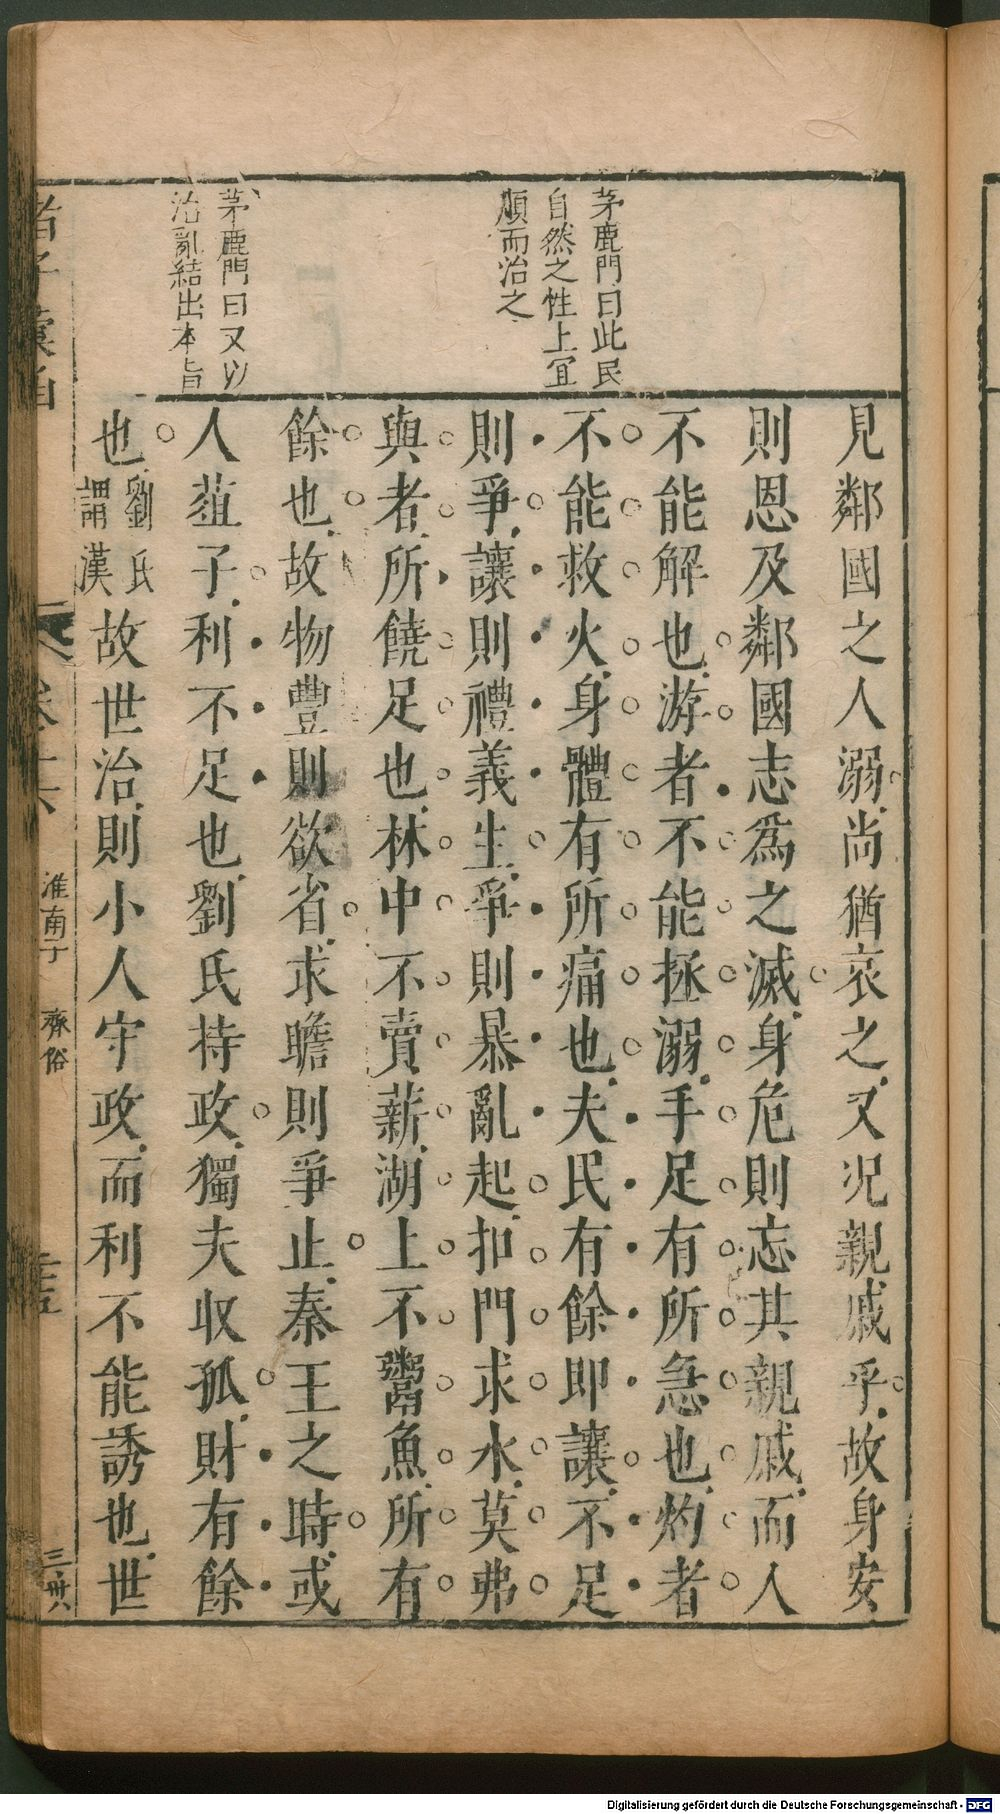 茅鹿門曰此民
自然之性上宜
順而治之
茅鹿門曰又以
治亂結出本旨
見鄰國之人溺尚猶哀之又況親戚乎故身安
則恩及鄰國志爲之滅身危則忘其親戚而人
不能解也游者不能拯溺手足有所急也灼者
不能救火身體有所痛也夫民有餘即讓不足
則爭讓則禮義生爭則暴亂起扣門求水莫弗
與者所饒足也林中不賣薪湖上不鬻魚所有
餘也故物豐則欲省求瞻則爭止秦王之時或
人葅子利不足也劉氏持政獨夫收孤財有餘
也劉氏謂漢故世治則小人守政而利不能誘也世
淮南子 齊俗
三卅八
Digitalisierung gefördert durch die Deutsche Forschungsgemeinschaft - DFG